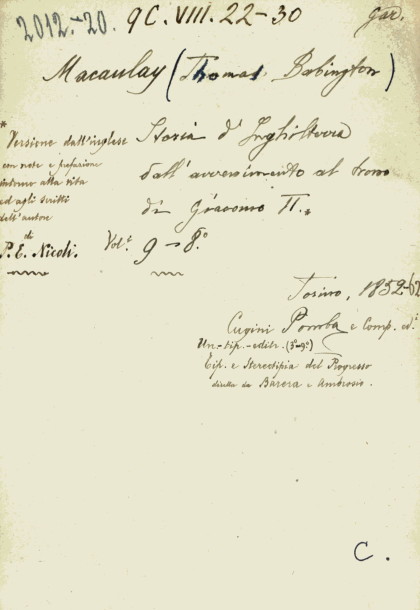 2012.-20. 9C.VIII.22-30 gar.
Macaulay (Thomas Babington)
Storia d'Inghilterra
dall'avvenimento al trono
di Giacomo II.*
Vol.i 9 - 8.°
* Versione dall'inglese
con note e prefazione
intorno alla vita
ed agli scritti
dell'autore
di
P. E. Nicoli.
Torino, 1852-62
Cugini Pomba e Comp. ed.i
Un.-tip.-editr. (3°-9°)
Tip. e Stereotipia del Progresso
diretta da Barera e Ambrosio.
C.